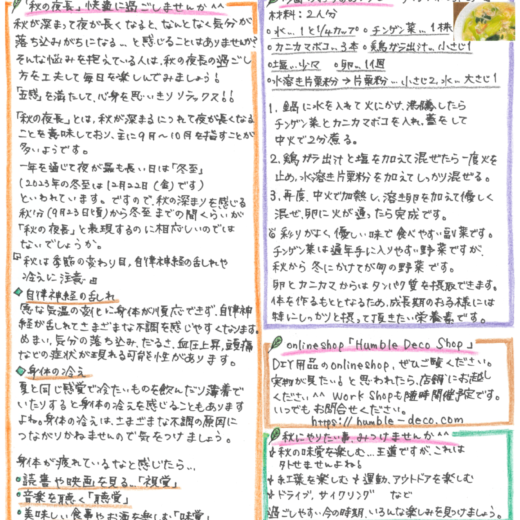 「秋の夜長」快適に過ごしませんか^^
秋が深まって夜が長くなると、なんとなく気分が
落ち込みがちになる... と感じることはありませんか?
そんな悩みを抱えている人は、秋の夜長の過ごし
方を工夫して毎日を楽しんでみましょう!
「五感」を満たして、心身を思いきりリラックス!!
「秋の夜長」とは、秋が深まるにつれて夜が長くなる
ことを意味しており、主に9月~10月を指すことが
多いようです。
一年を通じて夜が最も長い日は「冬至」
(2023年の冬至は12月22日(金)です)
といわれています。ですので、秋の深まりを感じる
秋分(9月23日(土))から冬至までの間くらいが
「秋の夜長」と表現するのに相応しいのでは
ないでしょうか。
『秋は季節の変わり目、自律神経の乱れや
冷えに注意』
自律神経の乱れ
急な気温の変化に身体が順応できず、自律神
経が乱れてさまざまな不調を感じやすくなります。
めまい、気分の落ち込み、だるさ、血圧上昇、頭痛
などの症状が現れる可能性があります。
身体の冷え
夏と同じ感覚で冷たいものを飲んだり薄着で
いたりすると身体の冷えを感じることもあります
よね。身体の冷えは、さまざまな不調の原因に
つながりかねませんので気をつけましょう。
身体が疲れているなと感じたら...
読書や映画を見る...「視覚」
音楽を聴く「聴覚」
美味しい食事やお酒を楽しむ「味覚」
材料:2人分
水... 1と1/4カップ チンゲン菜... 1株
カニカマボコ... 3本 鶏ガラ出汁... 小さじ1
塩... 少々 卵... 1個
水溶き片栗粉→片栗粉... 小さじ2、水... 大さじ1
1. 鍋に水を入れて火にかけ、沸騰したら
チンゲン菜とカニカマボコを入れ、蓋をして
中火で2分煮る。
2. 鶏ガラ出汁と塩を加えて混ぜたら一度火を
止め、水溶き片栗粉を加えてしっかり混ぜる。
3. 再度、中火で加熱し、溶き卵を加えて優しく
混ぜ、卵に火が通ったら完成です。
彩りがよく、優しい味で食べやすい副菜です。
チンゲン菜は通年手に入りやすい野菜ですが、
秋から冬にかけてが旬の野菜です。
卵とカニカマからはタンパク質を摂取できます。
体を作るもととなるため、成長期のお子様には
特にしっかりと摂って頂きたい栄養素です。
onlineshop「Humble Deco Shop」
DIY用品のonlineshop、ぜひご覧ください。
実物が見たい!と思われたら、店舗にお越し
ください^^ Work Shopも随時開催予定です。
いつでもお問合せください。
https://humble-deco.com
秋にやりたい事、みつけませんか^^
秋の味覚を楽しむ... 王道ですが、これは
外せませんよね!
紅葉を楽しむ 運動、アウトドアを楽しむ
ドライブ、サイクリング など
過ごしやすい今の時期、いろんな楽しみを見つけましょう。